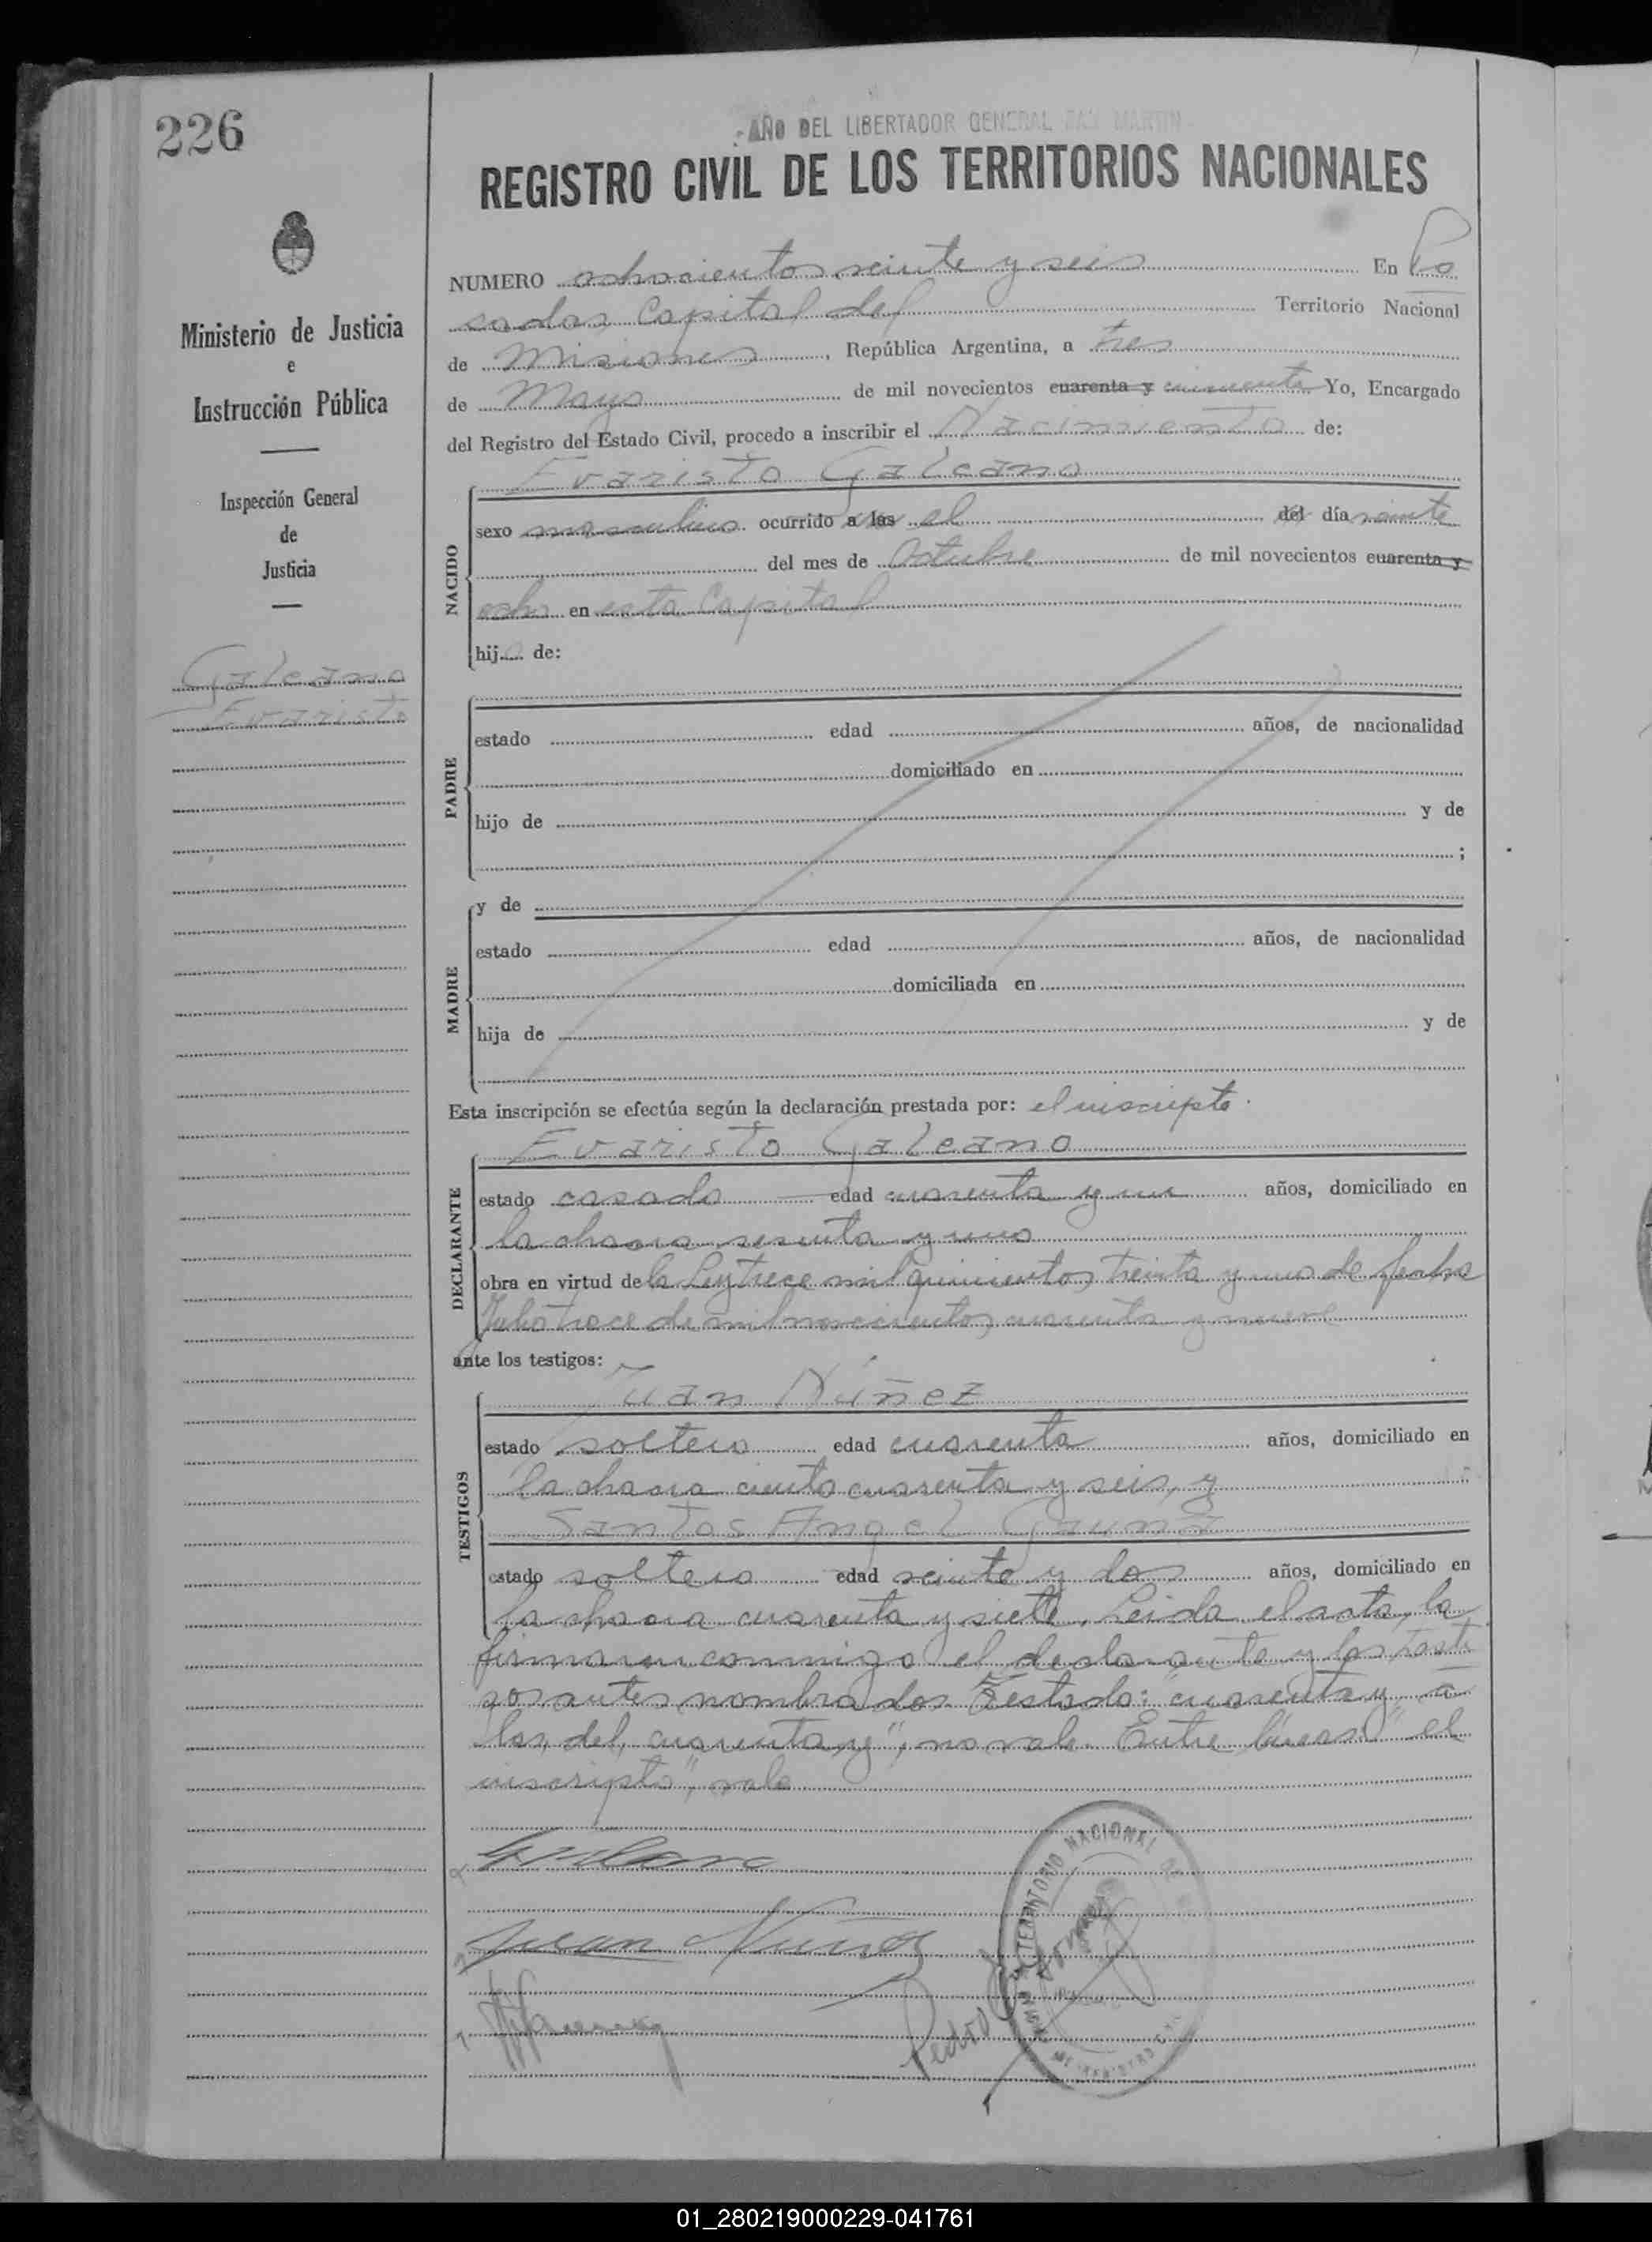 226
AÑO DEL LIBERTADOR GENERAL SAN MARTIN
REGISTRO CIVIL DE LOS TERRITORIOS NACIONALES
Ministerio de Justicia
e
Instrucción Pública
Inspección General
de
Justicia
Galeano
Evaristo
NUMERO ochocientos veinte y seis En Po
sadas Capital del Territorio Nacional
de Misiones, República Argentina, a tres
de Mayo de mil novecientos cuarenta y cincuenta Yo, Encargado
del Registro del Estado Civil, procedo a inscribir el Nacimiento de:
Evaristo Galeano
NACIDO
sexo masculino ocurrido a las el del día veinte
del mes de Octubre de mil novecientos cuarenta y
ocho en esta Capital
hijo de:
PADRE
estado edad años, de nacionalidad
domiciliado en
hijo de y de
;
MADRE
y de
estado edad años, de nacionalidad
domiciliada en
hija de y de
Esta inscripción se efectúa según la declaración prestada por: el inscripto
Evaristo Galeano
DECLARANTE
estado casado edad cuarenta y un años, domiciliado en
la chacra sesenta y uno
obra en virtud de la Ley trece mil quinientos treinta y uno de fecha
Julio trece de mil novecientos cuarenta y nueve
ante los testigos:
TESTIGOS
Juan Núñez
estado soltero edad cuarenta años, domiciliado en
la chacra ciento cuarenta y seis, y
Santos Angel
estado soltero edad veinte y dos años, domiciliado en
la chacra cuarenta y siete. Leida el acta, la
firman conmigo el declarante y los testi
gos antes nombrados Testado: "cuarenta y, a
las, del, cuarenta y", no vale. Entre líneas: "el
inscripto", vale
Juan Nuñez
Pedro
TERRITORIO NACIONAL
01_280219000229-041761